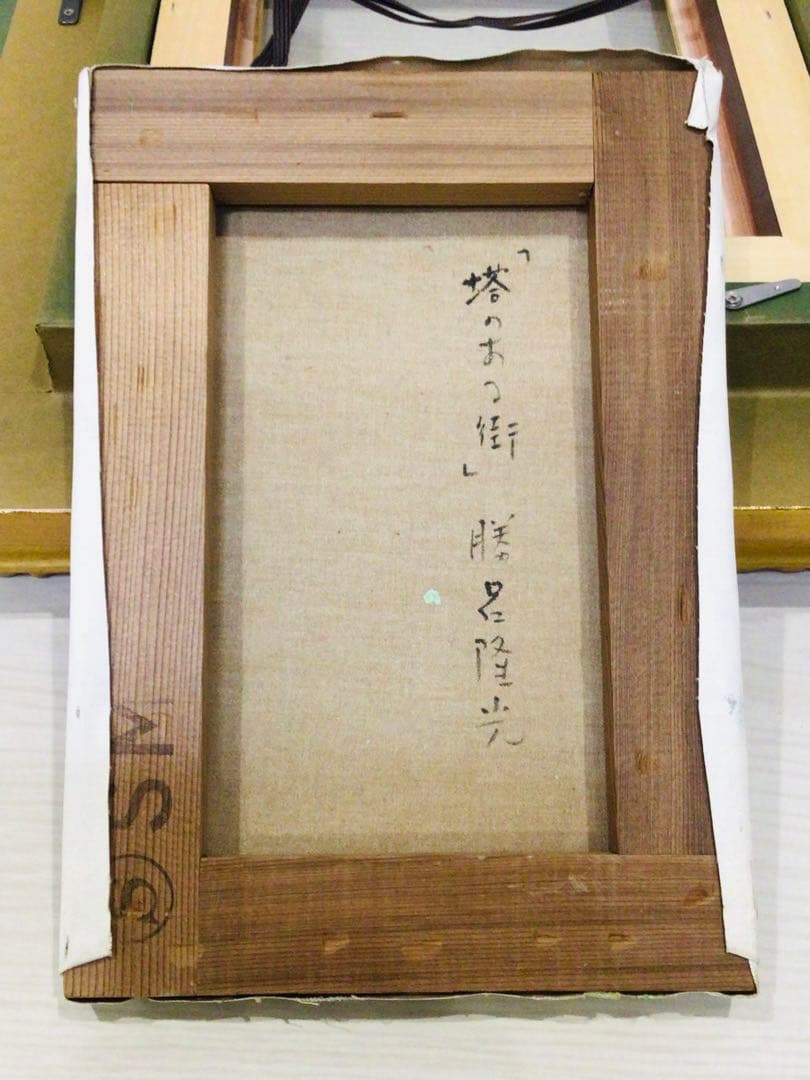 「塔のある街」 勝呂隆光
Ⓢ SM